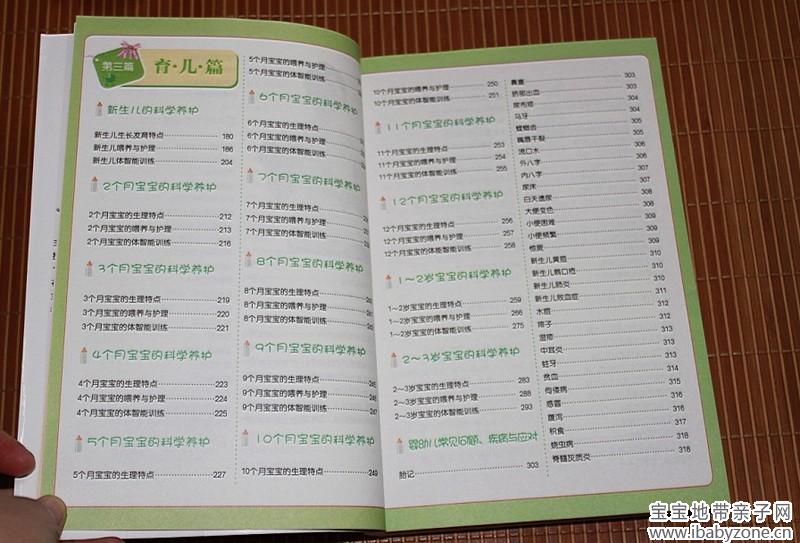 第三篇
育·儿·篇
新生儿的科学养护
新生儿生长发育特点 180
新生儿喂养与护理 186
新生儿体智能训练 204
2个月宝宝的科学养护
2个月宝宝的生理特点 212
2个月宝宝的喂养与护理 213
2个月宝宝的体智能训练 216
3个月宝宝的科学养护
3个月宝宝的生理特点 219
3个月宝宝的喂养与护理 220
3个月宝宝的体智能训练 221
4个月宝宝的科学养护
4个月宝宝的生理特点 223
4个月宝宝的喂养与护理 224
4个月宝宝的体智能训练 225
5个月宝宝的科学养护
5个月宝宝的生理特点 227
5个月宝宝的喂养与护理
5个月宝宝的体智能训练
6个月宝宝的科学养护
6个月宝宝的生理特点
6个月宝宝的喂养与护理
6个月宝宝的体智能训练
7个月宝宝的科学养护
7个月宝宝的生理特点
7个月宝宝的喂养与护理
7个月宝宝的体智能训练
8个月宝宝的科学养护
8个月宝宝的生理特点
8个月宝宝的喂养与护理
8个月宝宝的体智能训练
9个月宝宝的科学养护
9个月宝宝的生理特点 245
9个月宝宝的喂养与护理 246
9个月宝宝的体智能训练 247
10个月宝宝的科学养护
10个月宝宝的生理特点 249
10个月宝宝的喂养与护理 250
10个月宝宝的体智能训练 251
11个月宝宝的科学养护
11个月宝宝的生理特点 253
11个月宝宝的喂养与护理 254
11个月宝宝的体智能训练 255
12个月宝宝的科学养护
12个月宝宝的生理特点 256
12个月宝宝的喂养与护理 257
12个月宝宝的体智能训练 258
1~2岁宝宝的科学养护
1~2岁宝宝的生理特点 259
1~2岁宝宝的喂养与护理 266
1~2岁宝宝的体智能训练 275
2~3岁宝宝的科学养护
2~3岁宝宝的生理特点 283
2~3岁宝宝的喂养与护理 288
2~3岁宝宝的体智能训练 293
婴幼儿常见问题、疾病与应对
胎记 303
鼻塞 303
脐部出血 303
尿布疹 304
马牙 304
螳螂齿 305
嘴唇干裂 305
流口水 306
外八字 307
内八字 307
尿床 307
白天遗尿 308
大便变色 308
小便困难 309
小便频繁 309
惊厥 309
新生儿黄疸 310
新生儿鹅口疮 310
新生儿肺炎 310
新生儿败血症 311
水痘 312
痱子 312
湿疹 313
中耳炎 313
蛀牙 313
贫血 314
佝偻病 315
感冒 316
腹泻 316
积食 317
蛲虫病 318
脊髓灰质炎 318
宝宝地带亲子网
www.ibabyzone.cn